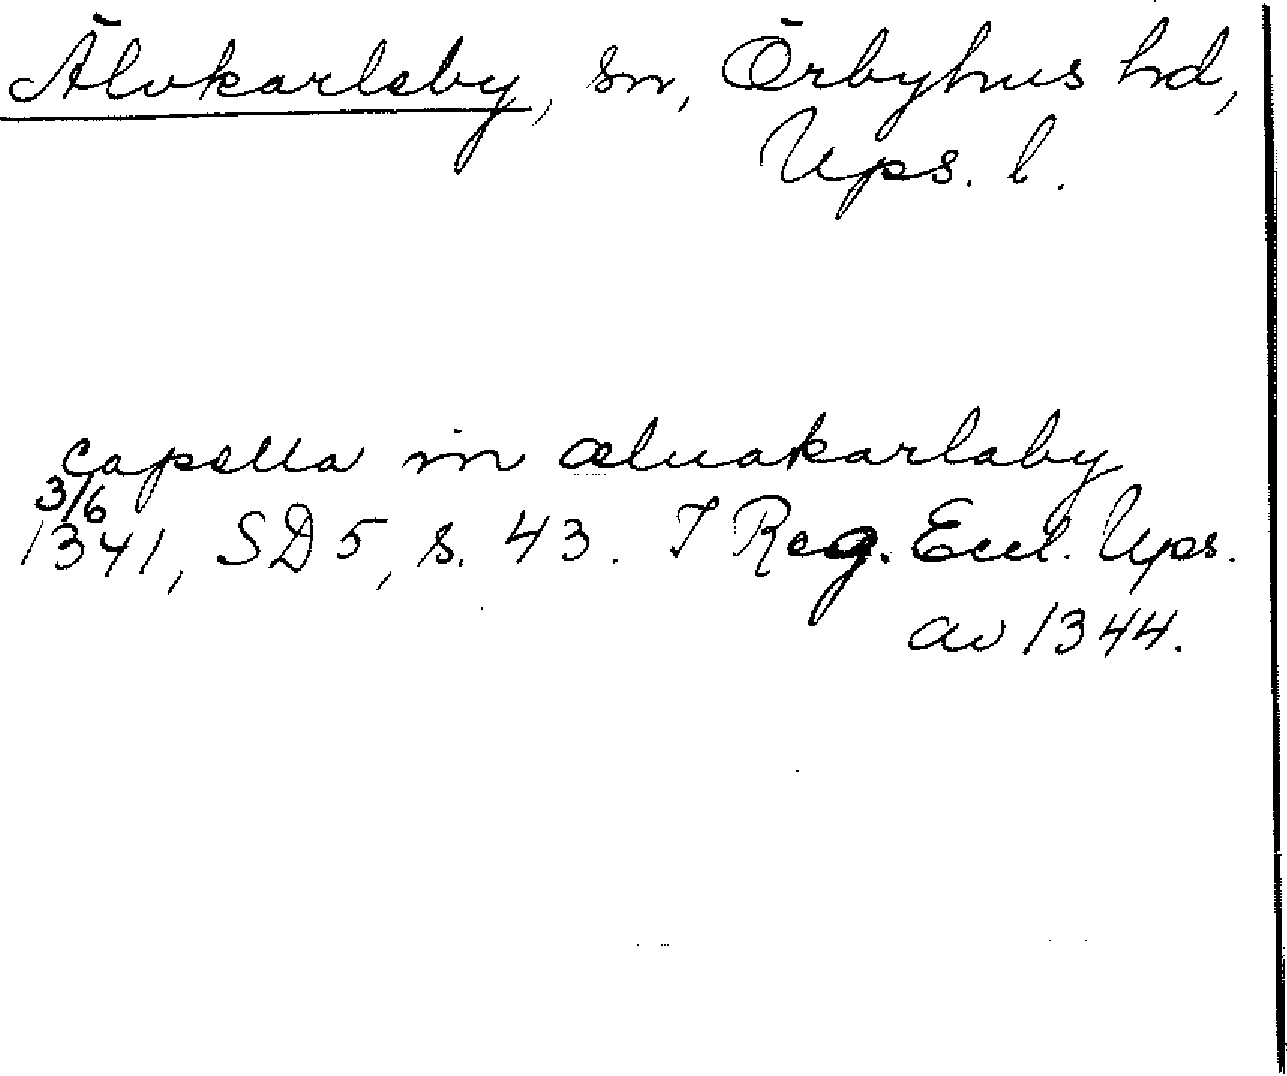 Älvkarleby, sn, Örbyhus hd,
Ups. l.
capella in æluakarlaby
3/6
1341, SD 5, s. 43. I Reg. Eccl. Ups.
av 1344.